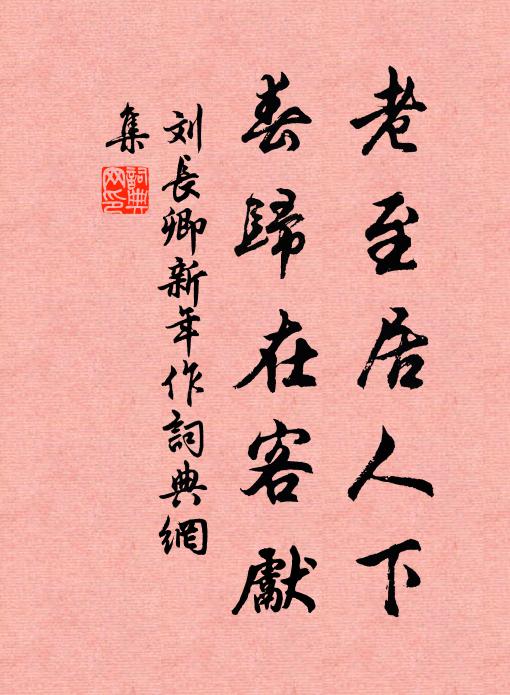 老至居人下
春歸在客獻
刘長卿新年作詞典網
集
詞典网印